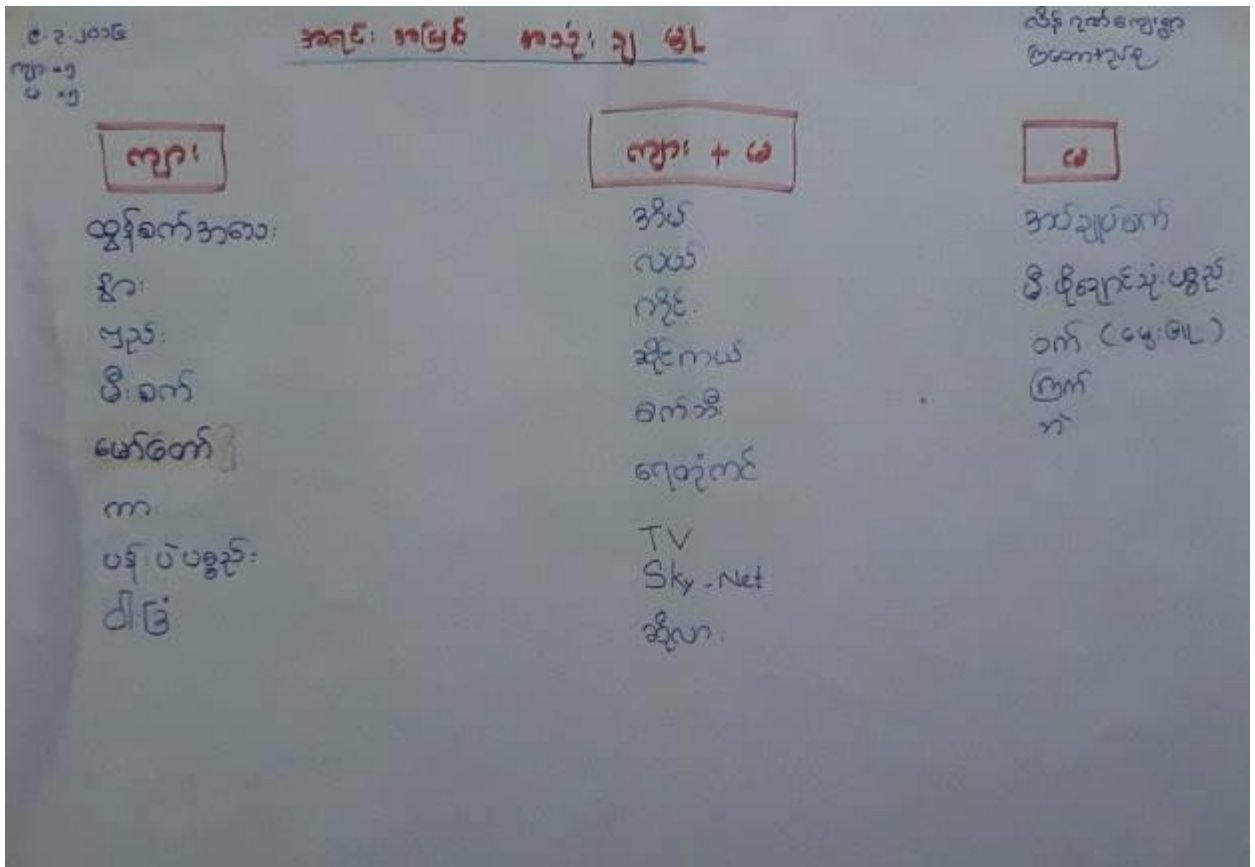 ၉-၃-၂၀၁၆
ကျား -၅
မ -၅
အရင်း အမြစ် အသုံး ချ မှု
လိန် ဂုဏ်ကျေးရွာ
ကျား
ထွန်စက်အသေး
နွား
လှည်း
မီးစက်
မော်တော်
ကား
ပန်းပဲပစ္စည်း
ဝါးခြံ
ကျား + မ
အိမ်
လယ်
ကိုင်း
ဆိုင်ကယ်
စက်ဘီး
ရေတုံကင်
TV
Sky-Net
ဆိုလာ
မ
အပ်ချုပ်စက်
မီးဖိုချောင်သုံးပစ္စည်း
ဝက် (မွေးမြူ)
ကြက်
ဘဲ